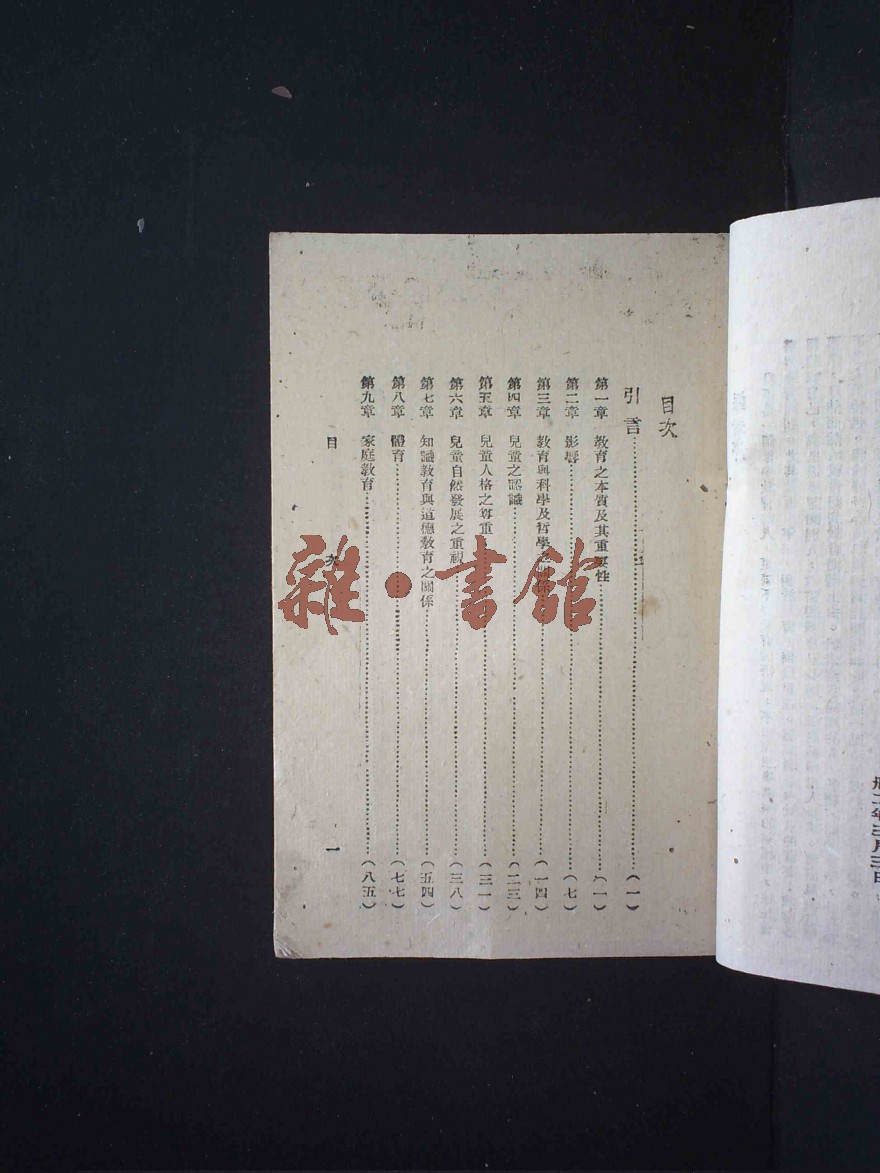 目次
引言……（一）
第一章　教育之本質及其重要性……（一）
第二章　影響……（七）
第三章　教育與科學及哲學之關係……（一四）
第四章　兒童之認識……（二三）
第五章　兒童人格之尊重……（三一）
第六章　兒童自然發展之重視……（三八）
第七章　知識教育與道德教育之關係……（五四）
第八章　體育……（七七）
第九章　家庭教育……（八五）
目　次　一
雜·書館